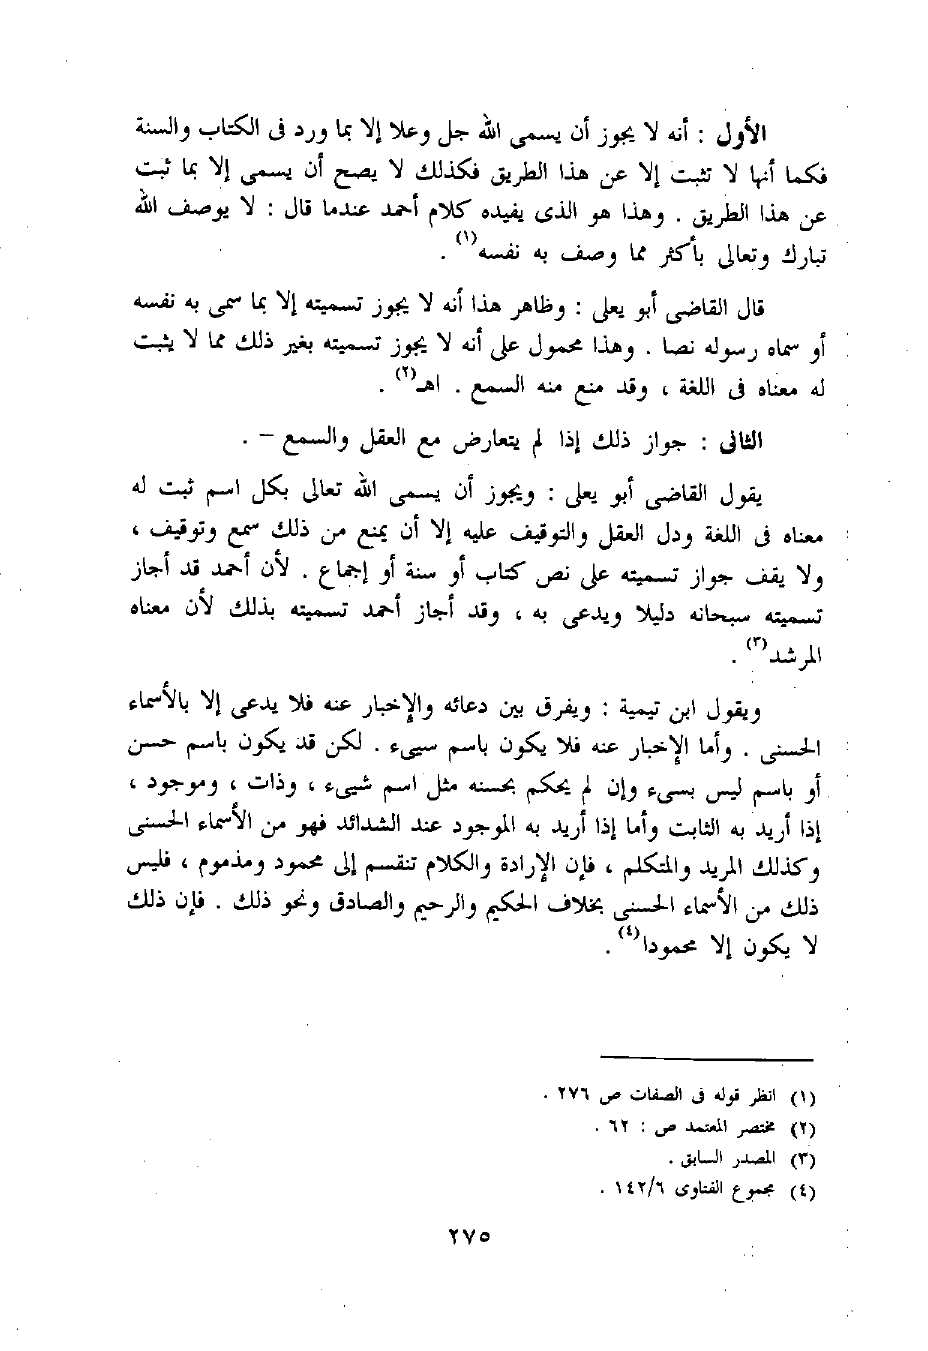 الأول : أنه لا يجوز أن يسمى الله جل وعلا إلا بما ورد فى الكتاب والسنة
فكما أنها لا تثبت إلا عن هذا الطريق فكذلك لا يصح أن يسمى إلا بما ثبت
عن هذا الطريق . وهذا هو الذى يفيده كلام أحمد عندما قال : لا يوصف الله
تبارك وتعالى بأكثر مما وصف به نفسه(١) .
قال القاضى أبو يعلى : وظاهر هذا أنه لا يجوز تسميته إلا بما سمى به نفسه
أو سماه رسوله نصا . وهذا محمول على أنه لا يجوز تسميته بغير ذلك مما لا يثبت
له معناه فى اللغة ، وقد منع منه السمع . اهـ(٢) .
الثانى : جواز ذلك إذا لم يتعارض مع العقل والسمع – .
يقول القاضى أبو يعلى : ويجوز أن يسمى الله تعالى بكل اسم ثبت له
معناه فى اللغة ودل العقل والتوقيف عليه إلا أن يمنع من ذلك سمع وتوقيف ،
ولا يقف جواز تسميته على نص كتاب أو سنة أو إجماع . لأن أحمد قد أجاز
تسميته سبحانه دليلا ويدعى به ، وقد أجاز أحمد تسميته بذلك لأن معناه
المرشد(٣) .
ويقول ابن تيمية : ويفرق بين دعائه والإخبار عنه فلا يدعى إلا بالأسماء
الحسنى . وأما الإخبار عنه فلا يكون باسم سيىء . لكن قد يكون باسم حسن
أو باسم ليس بسىء وإن لم يحكم بحسنه مثل اسم شيىء ، وذات ، وموجود ،
إذا أريد به الثابت وأما إذا أريد به الموجود عند الشدائد فهو من الأسماء الحسنى
وكذلك المريد والمتكلم ، فإن الإرادة والكلام تنقسم إلى محمود ومذموم ، فليس
ذلك من الأسماء الحسنى بخلاف الحكيم والرحيم والصادق ونحو ذلك . فإن ذلك
لا يكون إلا محمودا(٤) .
(١) انظر قوله فى الصفات ص ٢٧٦ .
(٢) مختصر المعتمد ص : ٦٢ .
(٣) المصدر السابق .
(٤) مجموع الفتاوى ١٤٢/٦ .
٢٧٥